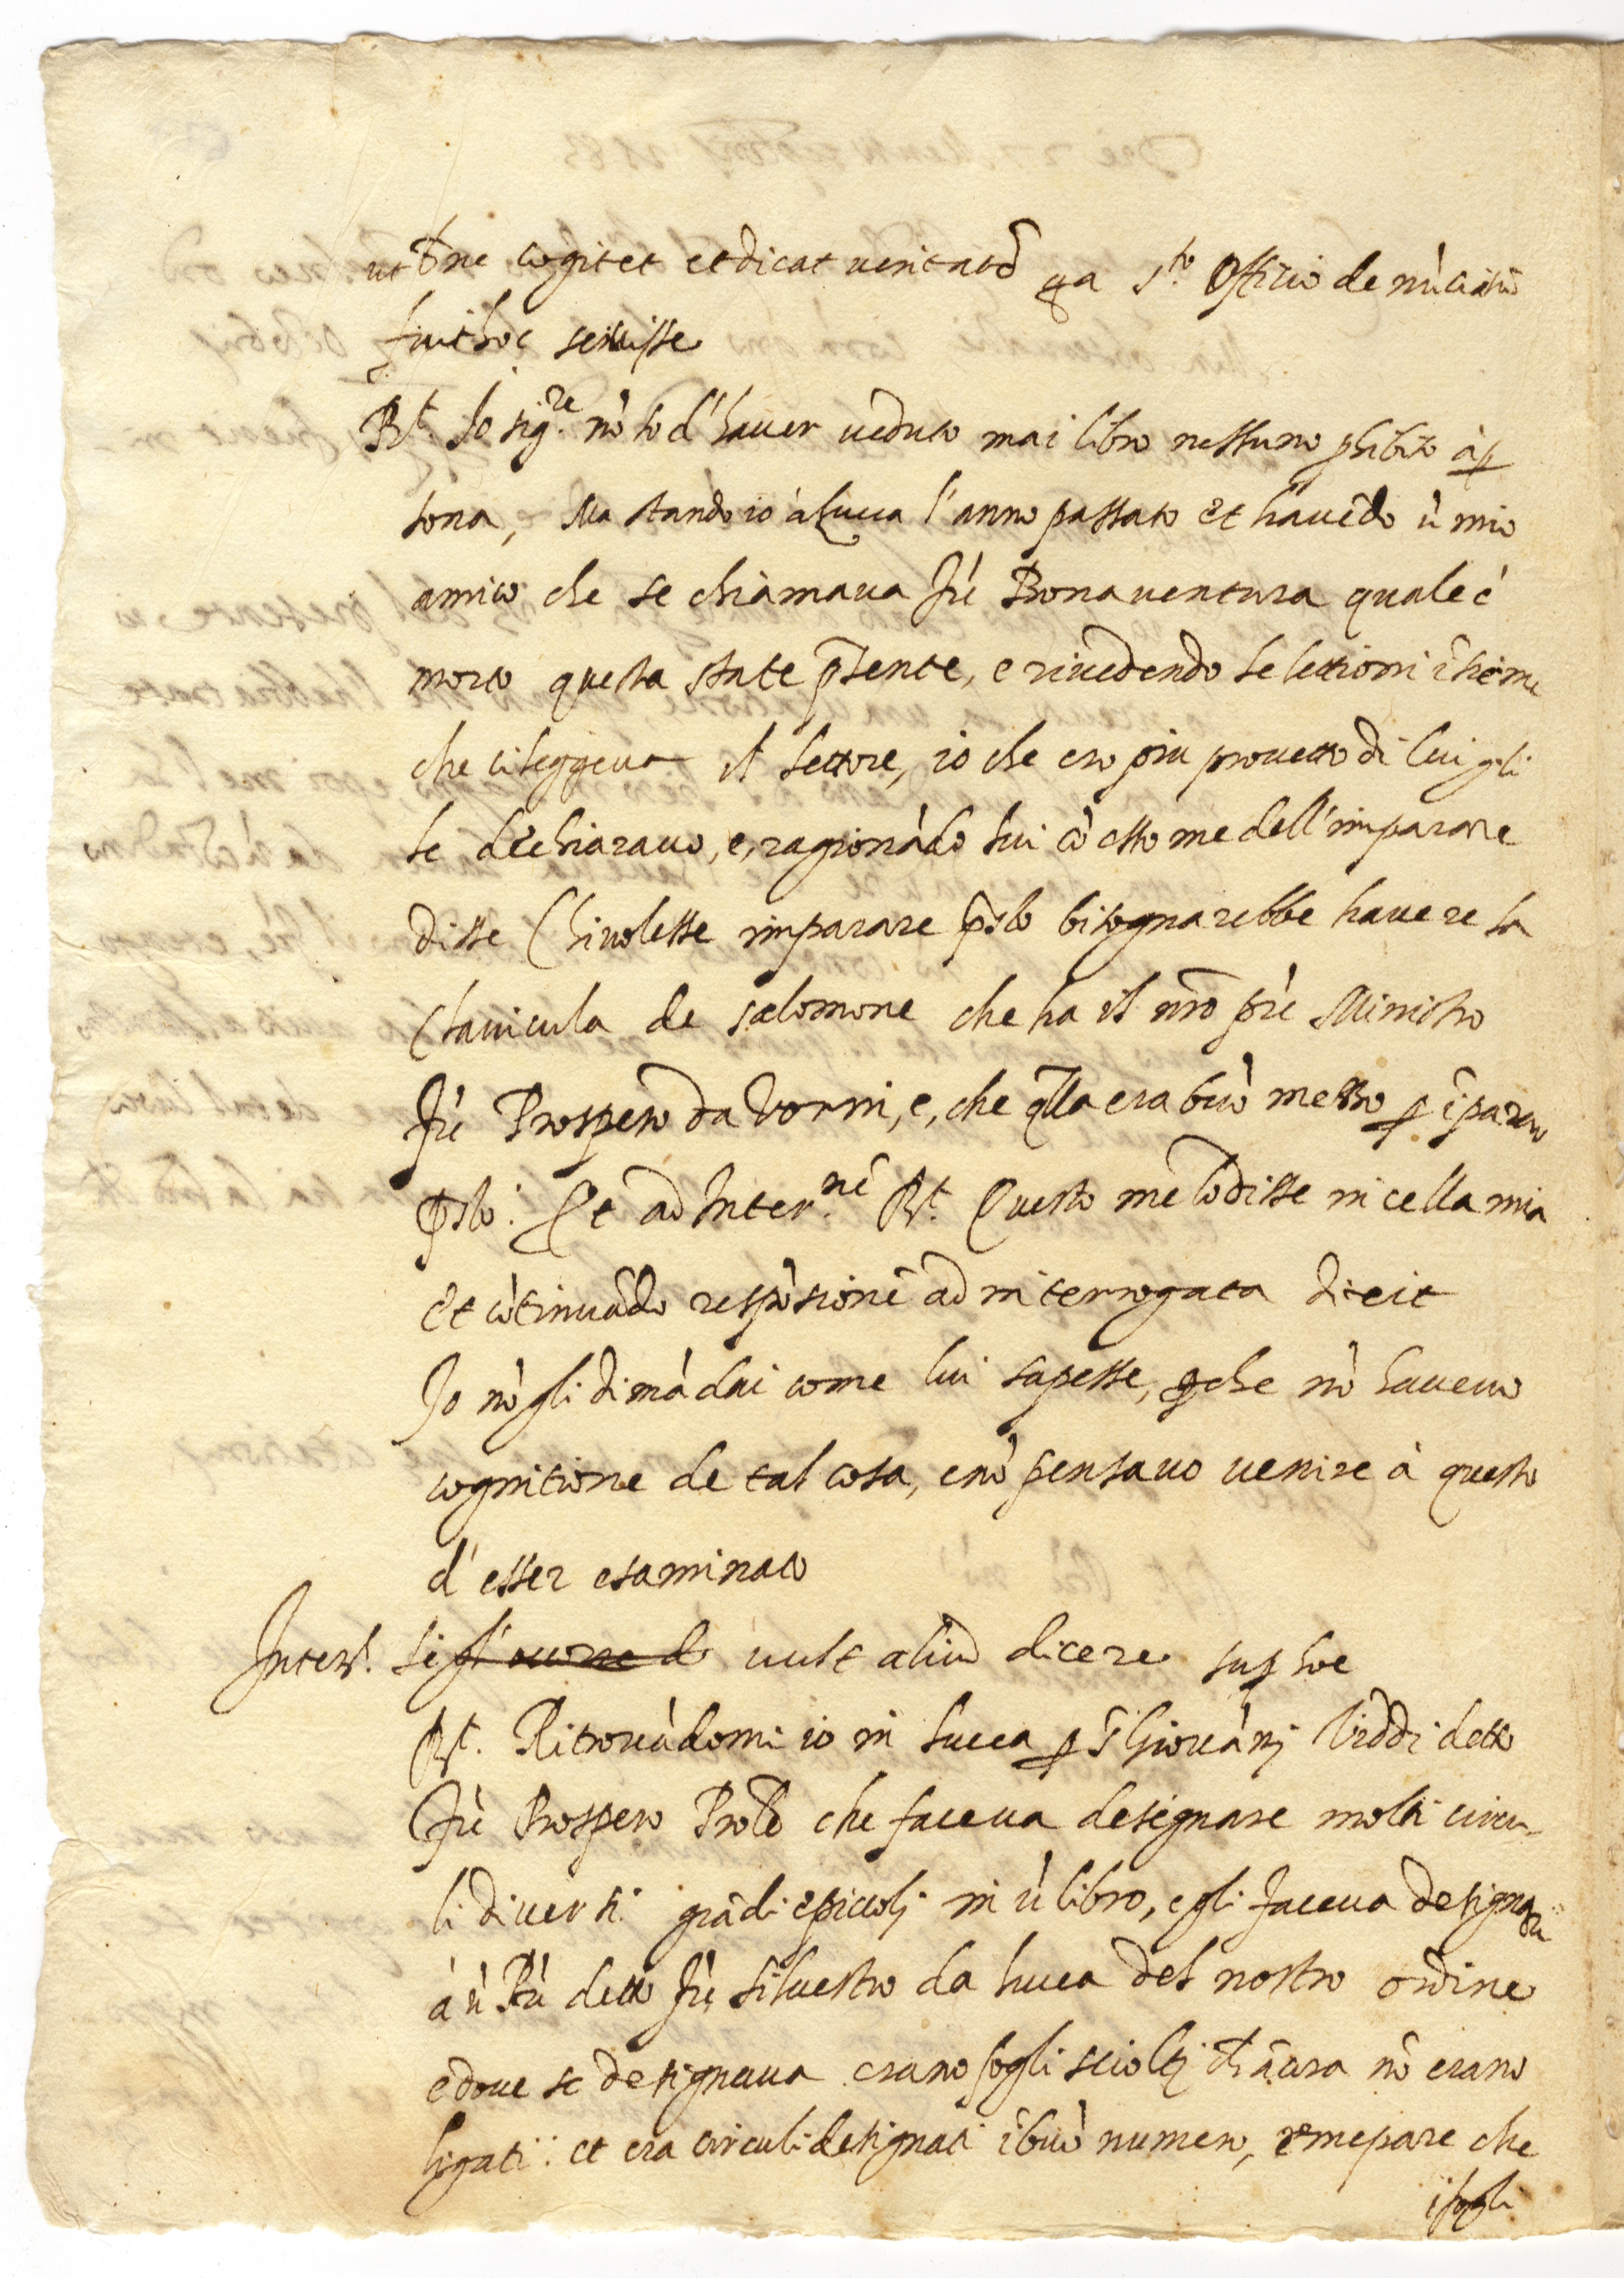 ut bñe cogitet et dicat veritatẽ qa S.to Officio denũciatũ
fuit hoc scivisse
R.t Io sig.re nõ so d'haver veduto mai libro nessuno ꝓhibito à ꝑ
sona, Ma stando io à Lucca l'anno passato et havẽdo ũ mio
amico che se chiamava frà Bonaventura quale è
morto questa state p̃sente, e rivedendo le lettioni ĩsieme
che ci leggeva il lettore, io che ero piu provetto di lui gli
le dechiaravo, e, ragionãdo lui cõ esso me dell'imparare
disse Chi volesse imparare p̃sto bisognarebbe havere la
Clavicula de salomone che ha il nr̃o p̃re Ministro
frà Prospero da Vorni, e, che q̃lla era buõ mezzo ꝑ ĩparar
p̃sto. Et ad Inter.nẽ R.t Questo me lo disse in cella mia
Et cõtinuãdo respõsionẽ ad interrogata dicit
Io nõ gli dimãdai come lui sapesse, ꝑche nõ havevo
cognitione de tal cosa, e nõ pensavo venire à questo
d'esser esaminato
Inter.s si vult aliud dicere suꝑ hoc
R.t Ritrovãdomi io in Lucca ꝑ S. Giovãni viddi detto
frà Prospero che faceva designare molti circu-
li diversi grãdi e piccoli in ũ libro, e gli faceva designare
à ũ detto frà Silvestro da Lucca del nostro ordine
e dove se designava erano fogli sciolti ch' ãcora nõ erano
ligati: et era circuli designati ĩ buõ numero, e me pare che
i fogli